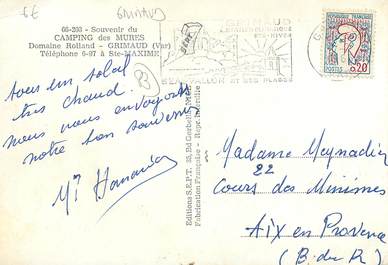 6€ GRIMAUD
66-203 - Souvenir du
CAMPING des MURES
Domaine Rolland - GRIMAUD (Var)
Téléphone 6-97 à Ste-MAXIME
sous un soleil
très chaud.
nous vous envoyons
notre bon souvenir
Editions S.E.P.T. 35, Bd Gorbella, NICE
Fabrication Française - Repr. interdite
GRIMAUD
BEAUVALLON ET SES PLAGES
REPUBLIQUE FRANÇAISE
POSTES
0,20
Madame Meynadier
22
Cours des Minimes
Aix en Provence
(B. du R)